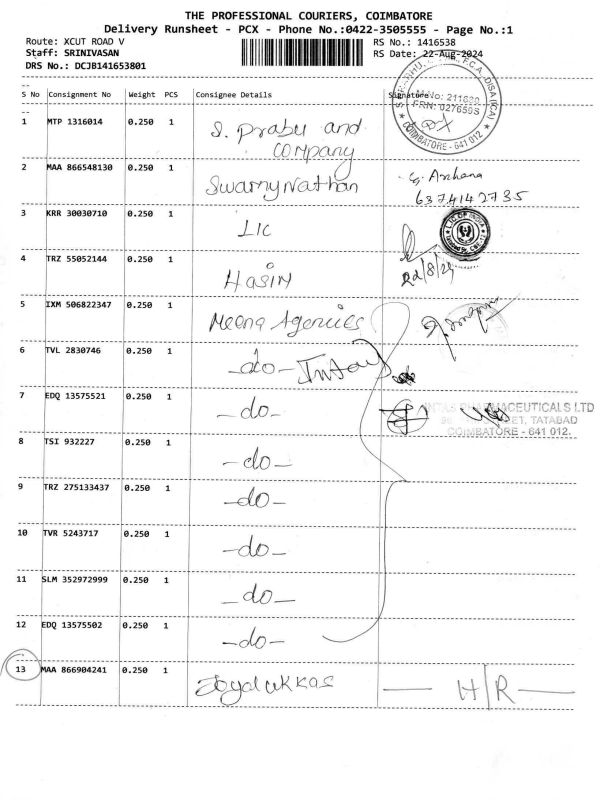 THE PROFESSIONAL COURIERS, COIMBATORE
Delivery Runsheet - PCX - Phone No.:0422-3505555 - Page No.:1
Route: XCUT ROAD V
RS No.: 1416538
Staff: SRINIVASAN
RS Date: 22-Aug-2024
DRS No.: DCJB141653801
S No Consignment No Weight PCS Consignee Details Signature
M.No: 211820
FRN: 027659S
COIMBATORE - 641 012
1 MTP 1316014 0.250 1 S. Prabu and
company
2 MAA 866548130 0.250 1 Swamynathan
6374142735
3 KRR 30030710 0.250 1 LIC
LIC OF INDIA
22/8/24
4 TRZ 55052144 0.250 1 Hasin
5 IXM 506822347 0.250 1 Meena Agencies
6 TVL 2830746 0.250 1 -do-
7 EDQ 13575521 0.250 1 -do-
PHARMACEUTICALS LTD
TATABAD
COIMBATORE - 641 012.
8 TSI 932227 0.250 1 -do-
9 TRZ 275133437 0.250 1 -do-
10 TVR 5243717 0.250 1 -do-
11 SLM 352972999 0.250 1 -do-
12 EDQ 13575502 0.250 1 -do-
13 MAA 866904241 0.250 1 Joyalukkas H/R